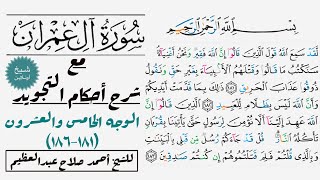 بِسْمِ اللَّهِ الرَّحْمَٰنِ الرَّحِيمِ
لَّقَدْ سَمِعَ اللَّهُ قَوْلَ الَّذِينَ قَالُوا إِنَّ اللَّهَ فَقِيرٌ وَنَحْنُ أَغْنِيَاءُ
سَنَكْتُبُ مَا قَالُوا وَقَتْلَهُمُ الْأَنبِيَاءَ بِغَيْرِ حَقٍّ وَنَقُولُ
ذُوقُوا عَذَابَ الْحَرِيقِ ١٨١ ذَٰلِكَ بِمَا قَدَّمَتْ أَيْدِيكُمْ
وَأَنَّ اللَّهَ لَيْسَ بِظَلَّامٍ لِّلْعَبِيدِ ١٨٢ الَّذِينَ قَالُوا إِنَّ اللَّهَ
عَهِدَ إِلَيْنَا أَلَّا نُؤْمِنَ لِرَسُولٍ حَتَّىٰ يَأْتِيَنَا بِقُرْبَانٍ
تَأْكُلُهُ النَّارُ قُلْ قَدْ جَاءَكُمْ رُسُلٌ مِّن قَبْلِي بِالْبَيِّنَاتِ
وَبِالَّذِي قُلْتُمْ فَلِمَ قَتَلْتُمُوهُمْ إِن كُنتُمْ صَادِقِينَ ١٨٣
سورة آل عمران
مع
شرح أحكام التجويد
الوجه الخامس والعشرون
(١٨١-١٨٦)
للشيخ أحمد صلاح عبدالعظيم